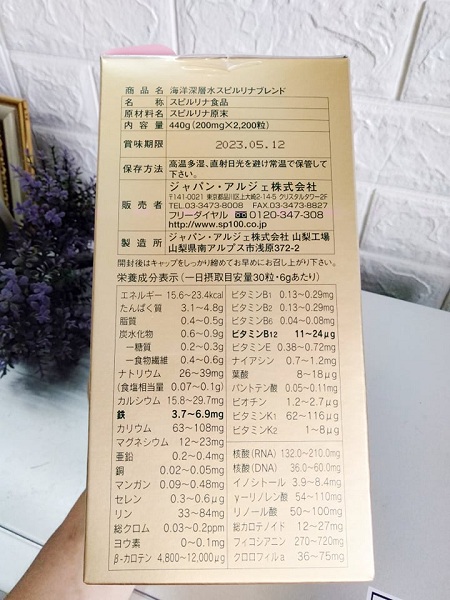 商品名 海洋深層水スピルリナブレンド
名称 スピルリナ食品
原材料名 スピルリナ原末
内容量 440g(200mg×2,200粒)
賞味期限 2023.05.12
保存方法 高温多湿、直射日光を避け常温で保管して
下さい。
販売者 ジャパン・アルジェ株式会社
〒141-0021 東京都品川区上大崎2-14-5 クリスタルタワー2F
TEL.03-3473-8008 FAX.03-3473-8827
フリーダイヤル 0120-347-308
http://www.sp100.co.jp
製造所 ジャパン・アルジェ株式会社 山梨工場
山梨県南アルプス市浅原372-2
開封後はキャップをしっかり締めてお早めにお召し上がり下さい。
栄養成分表示(一日摂取目安量30粒・6gあたり)
エネルギー 15.6~23.4kcal
たんぱく質 3.1~4.8g
脂質 0.4~0.5g
炭水化物 0.6~0.9g
―糖質 0.2~0.3g
―食物繊維 0.4~0.6g
ナトリウム 26~39mg
(食塩相当量 0.07~0.1g)
カルシウム 15.8~29.7mg
鉄 3.7~6.9mg
カリウム 63~108mg
マグネシウム 12~23mg
亜鉛 0.2~0.4mg
銅 0.02~0.05mg
マンガン 0.09~0.48mg
セレン 0.3~0.6μg
リン 33~84mg
総クロム 0.03~0.2ppm
ヨウ素 0~0.1mg
β-カロテン 4,800~12,000μg
ビタミンB1 0.13~0.29mg
ビタミンB2 0.13~0.29mg
ビタミンB6 0.04~0.08mg
ビタミンB12 11~24μg
ビタミンE 0.38~0.72mg
ナイアシン 0.7~1.2mg
葉酸 8~18μg
パントテン酸 0.05~0.11mg
ビオチン 1.2~2.7μg
ビタミンK1 62~116μg
ビタミンK2 1~8μg
核酸(RNA) 132.0~210.0mg
核酸(DNA) 36.0~60.0mg
イノシトール 3.9~8.4mg
γ-リノレン酸 54~110mg
リノール酸 50~100mg
総カロテノイド 12~27mg
フィコシアニン 270~720mg
クロロフィルa 36~75mg